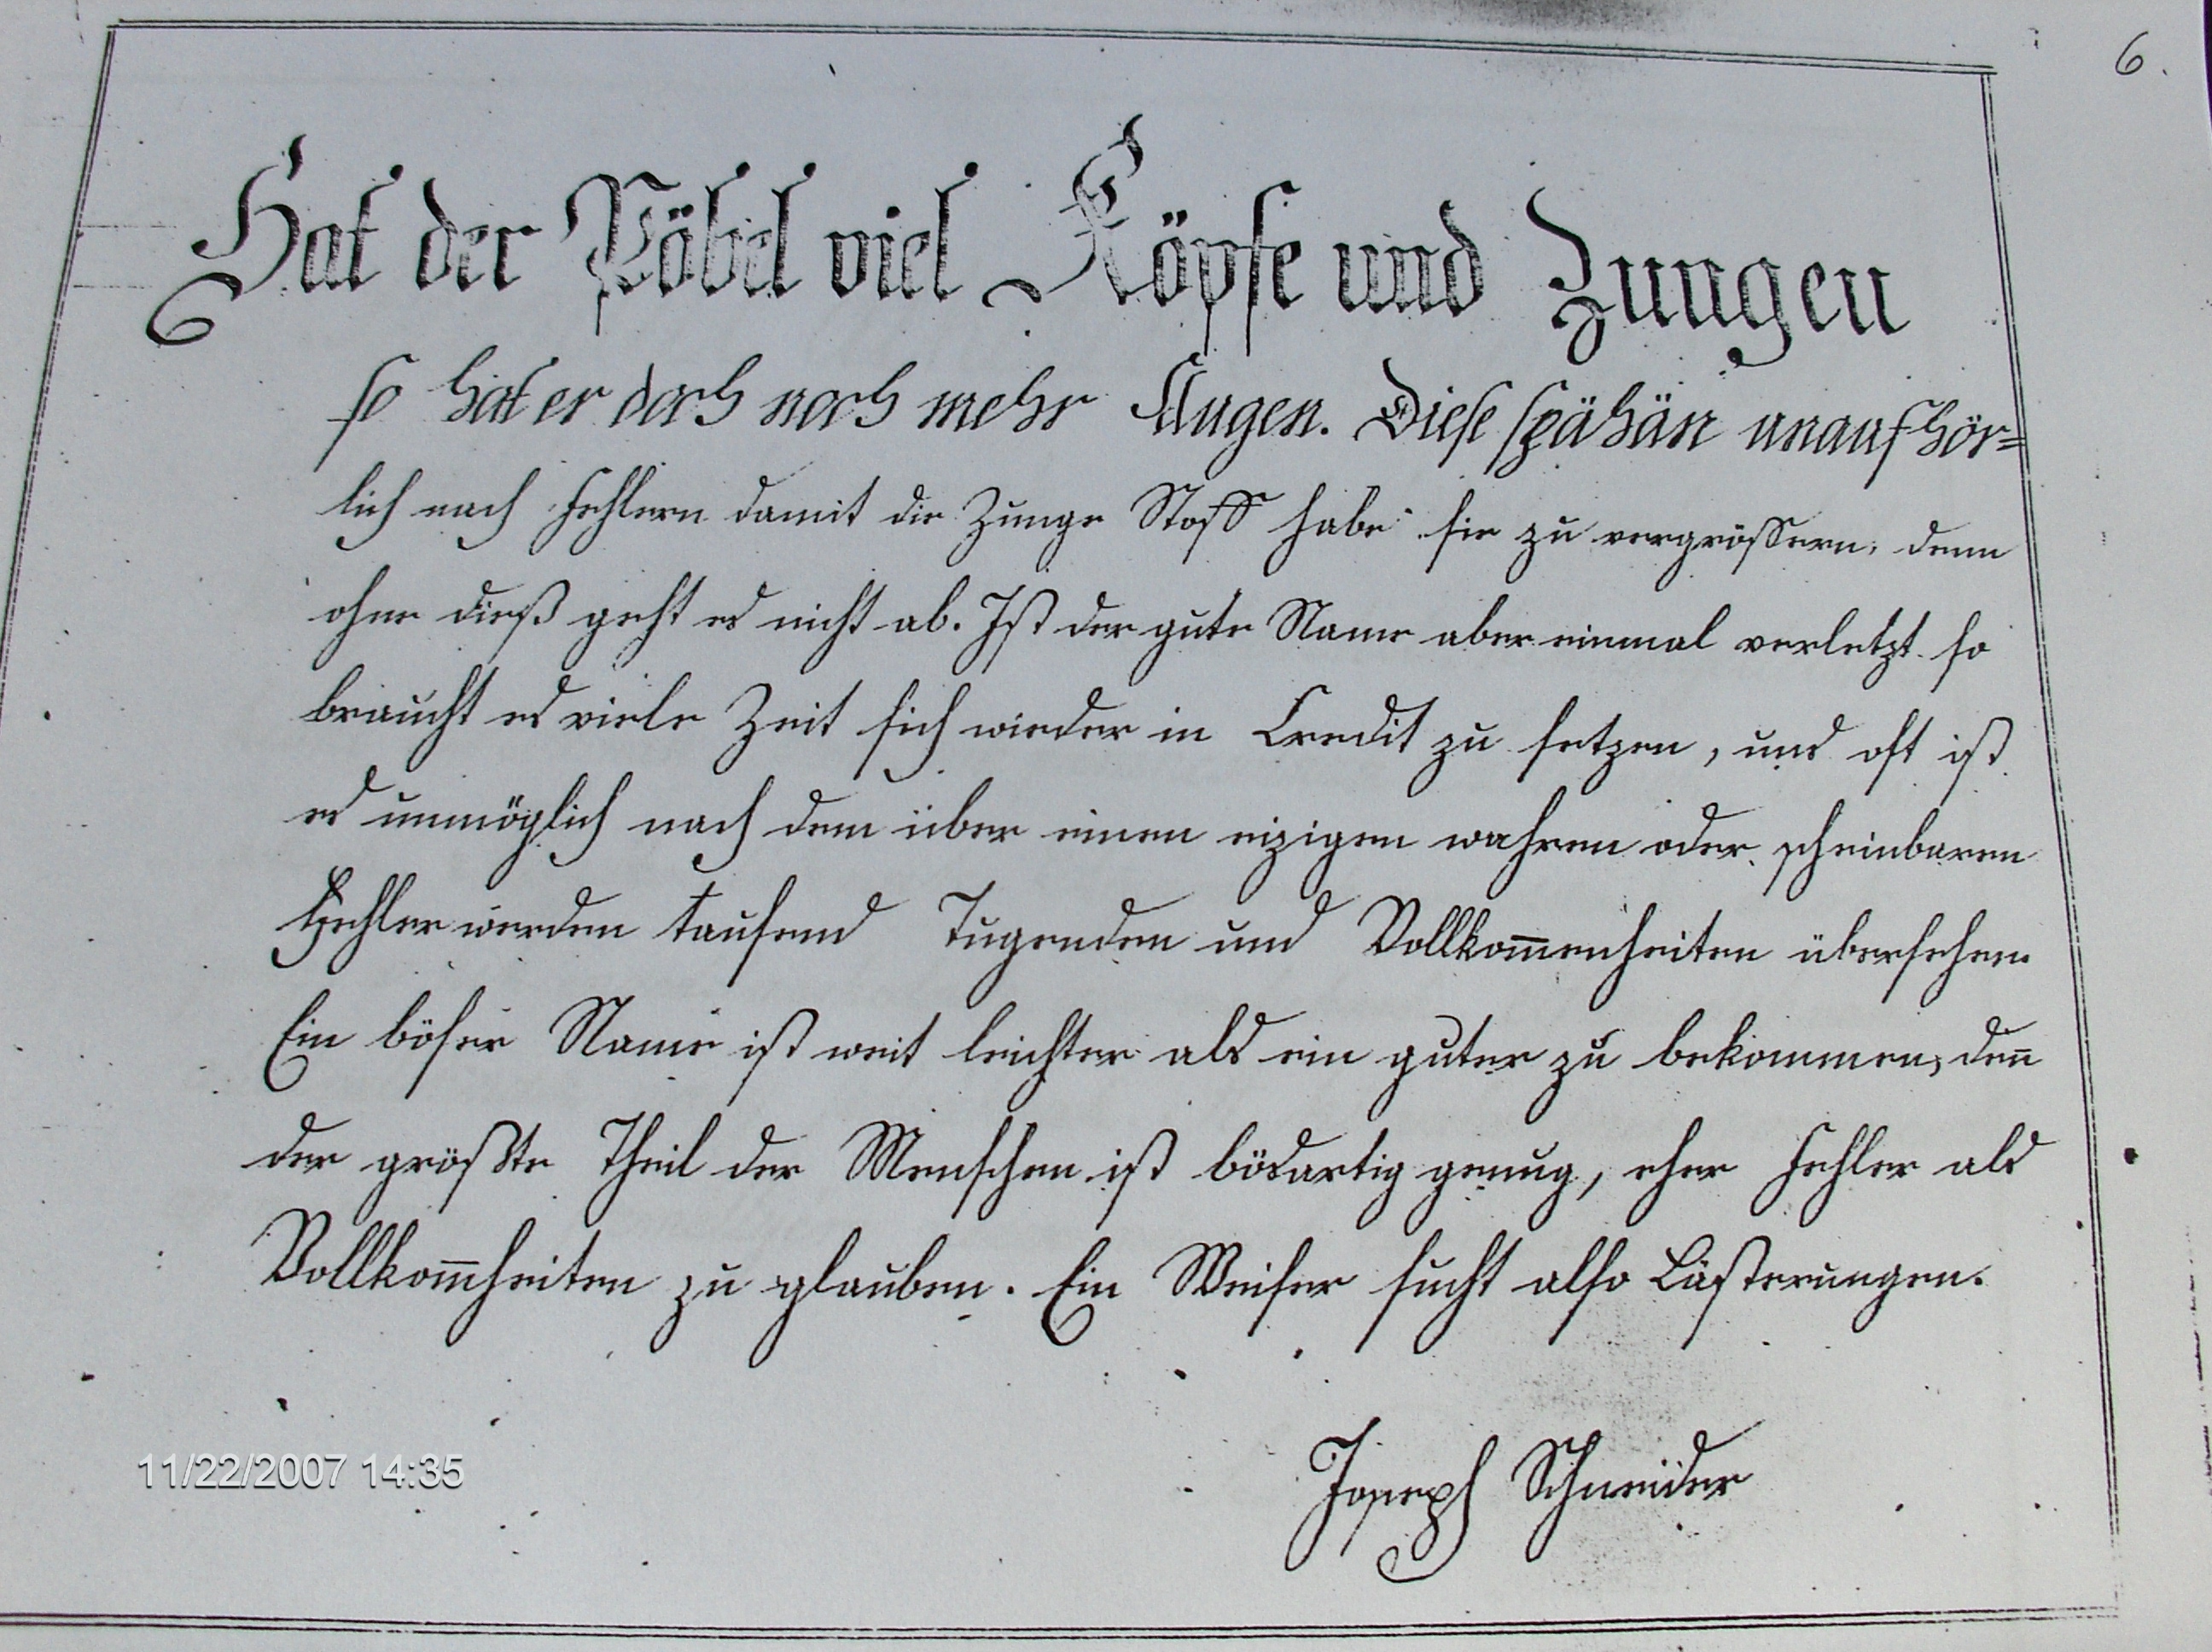 6.
Hat der Pöbel viel Köpfe und Zungen
so hat er doch noch mehr Augen. Diese spähän unaufhör=
lich nach Fehlern damit die Zunge Stoff habe sie zu vergrössern, denn
ohne dieß geht es nicht ab. Ist der gute Name aber einmal verletzt so
braucht es viele Zeit sich wieder in Credit zu setzen, und oft ist
es unmöglich nach dem über einen eizigen wahren oder scheinbaren
Fehler werden tausend Tugenden und Vollkom̄enheiten übersehen
Ein böser Name ist weit leichter als ein guter zu bekommen, den̄
der größte Theil der Menschen ist bösartig genug, eher Fehler als
Vollkom̄heiten zu glauben. Ein Weiser sucht also Lästerungen.
Joseph Schneider
11/22/2007 14:35